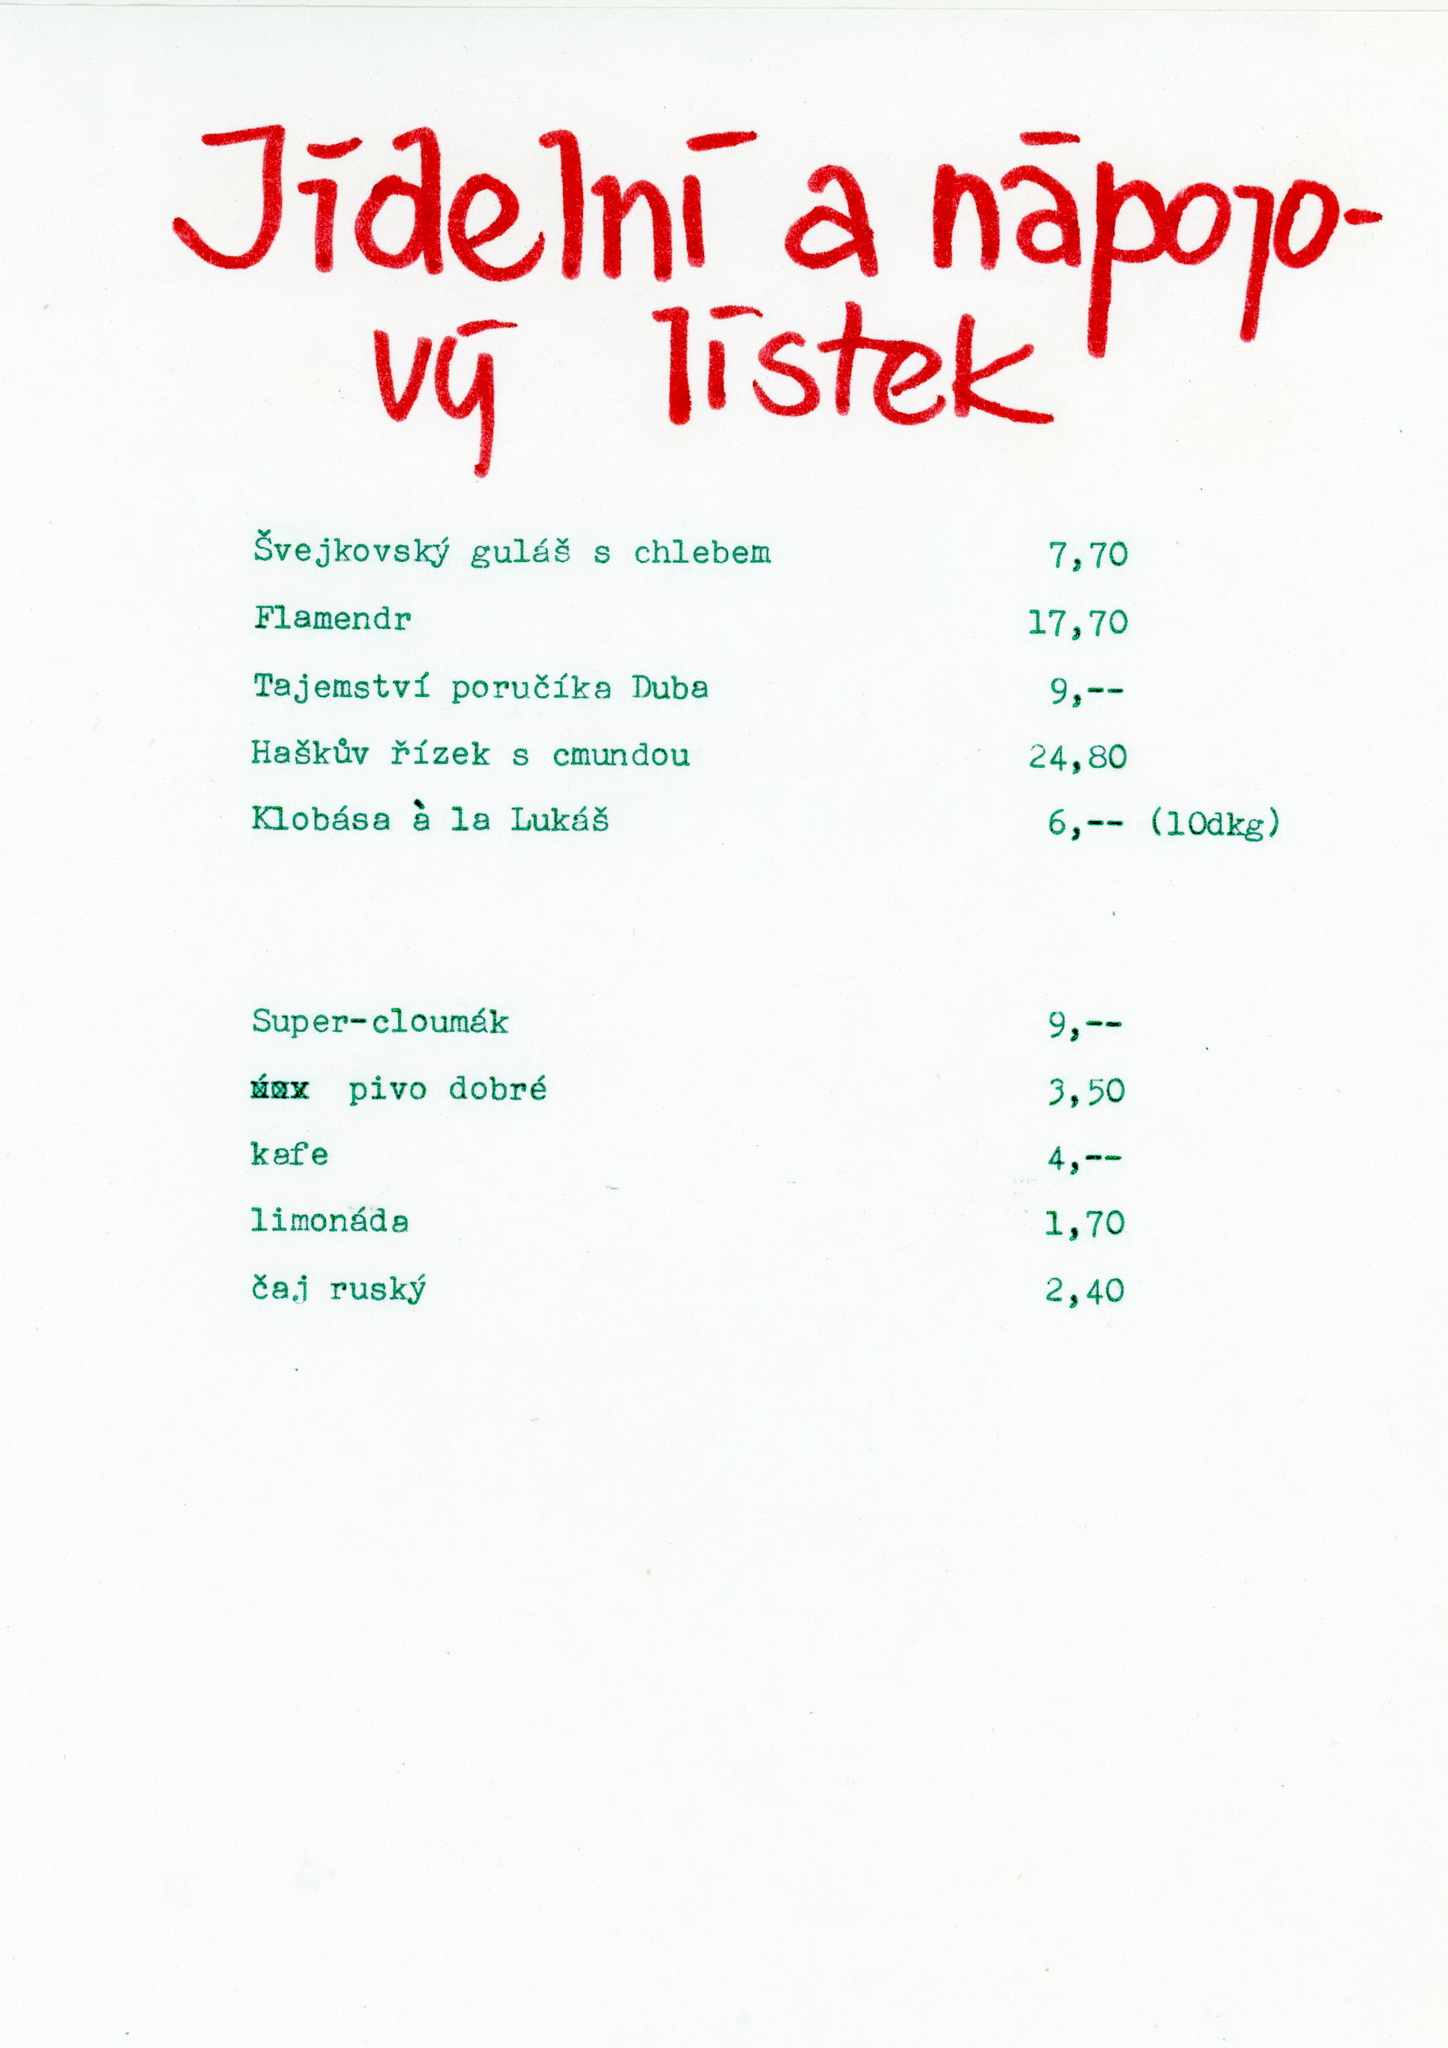 Jídelní a nápojo-
vý lístek
Švejkovský guláš s chlebem 7,70
Flamendr 17,70
Tajemství poručíka Duba 9,--
Haškův řízek s cmundou 24,80
Klobása à la Lukáš 6,-- (10dkg)
Super-cloumák 9,--
pivo dobré 3,50
kafe 4,--
limonáda 1,70
čaj ruský 2,40